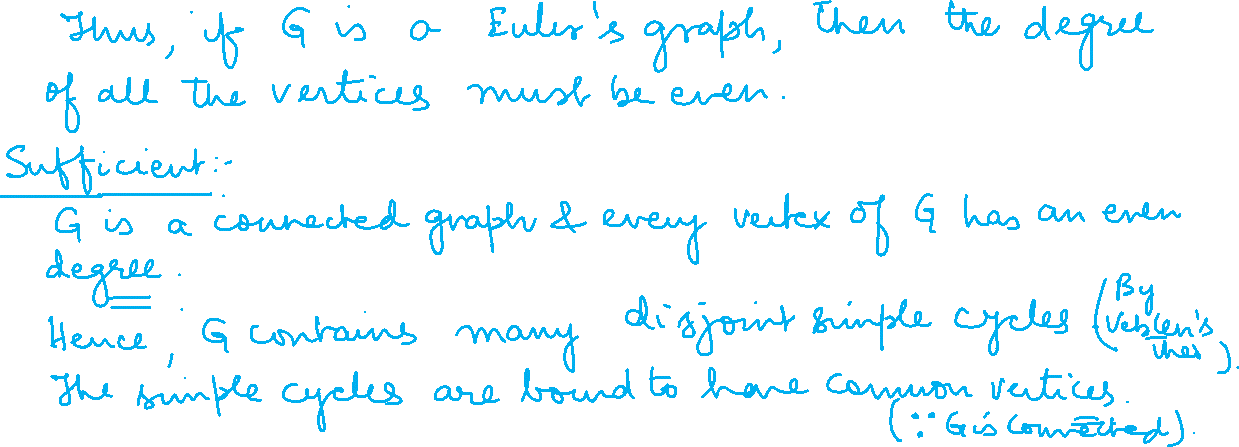 Thus, if G is a Euler's graph, then the degree
of all the vertices must be even.
Sufficient:-
G is a connected graph & every vertex of G has an even
degree.
Hence, G contains many disjoint simple cycles (By
Veblen's
thm).
The simple cycles are bound to have common vertices.
(∵ G is connected).